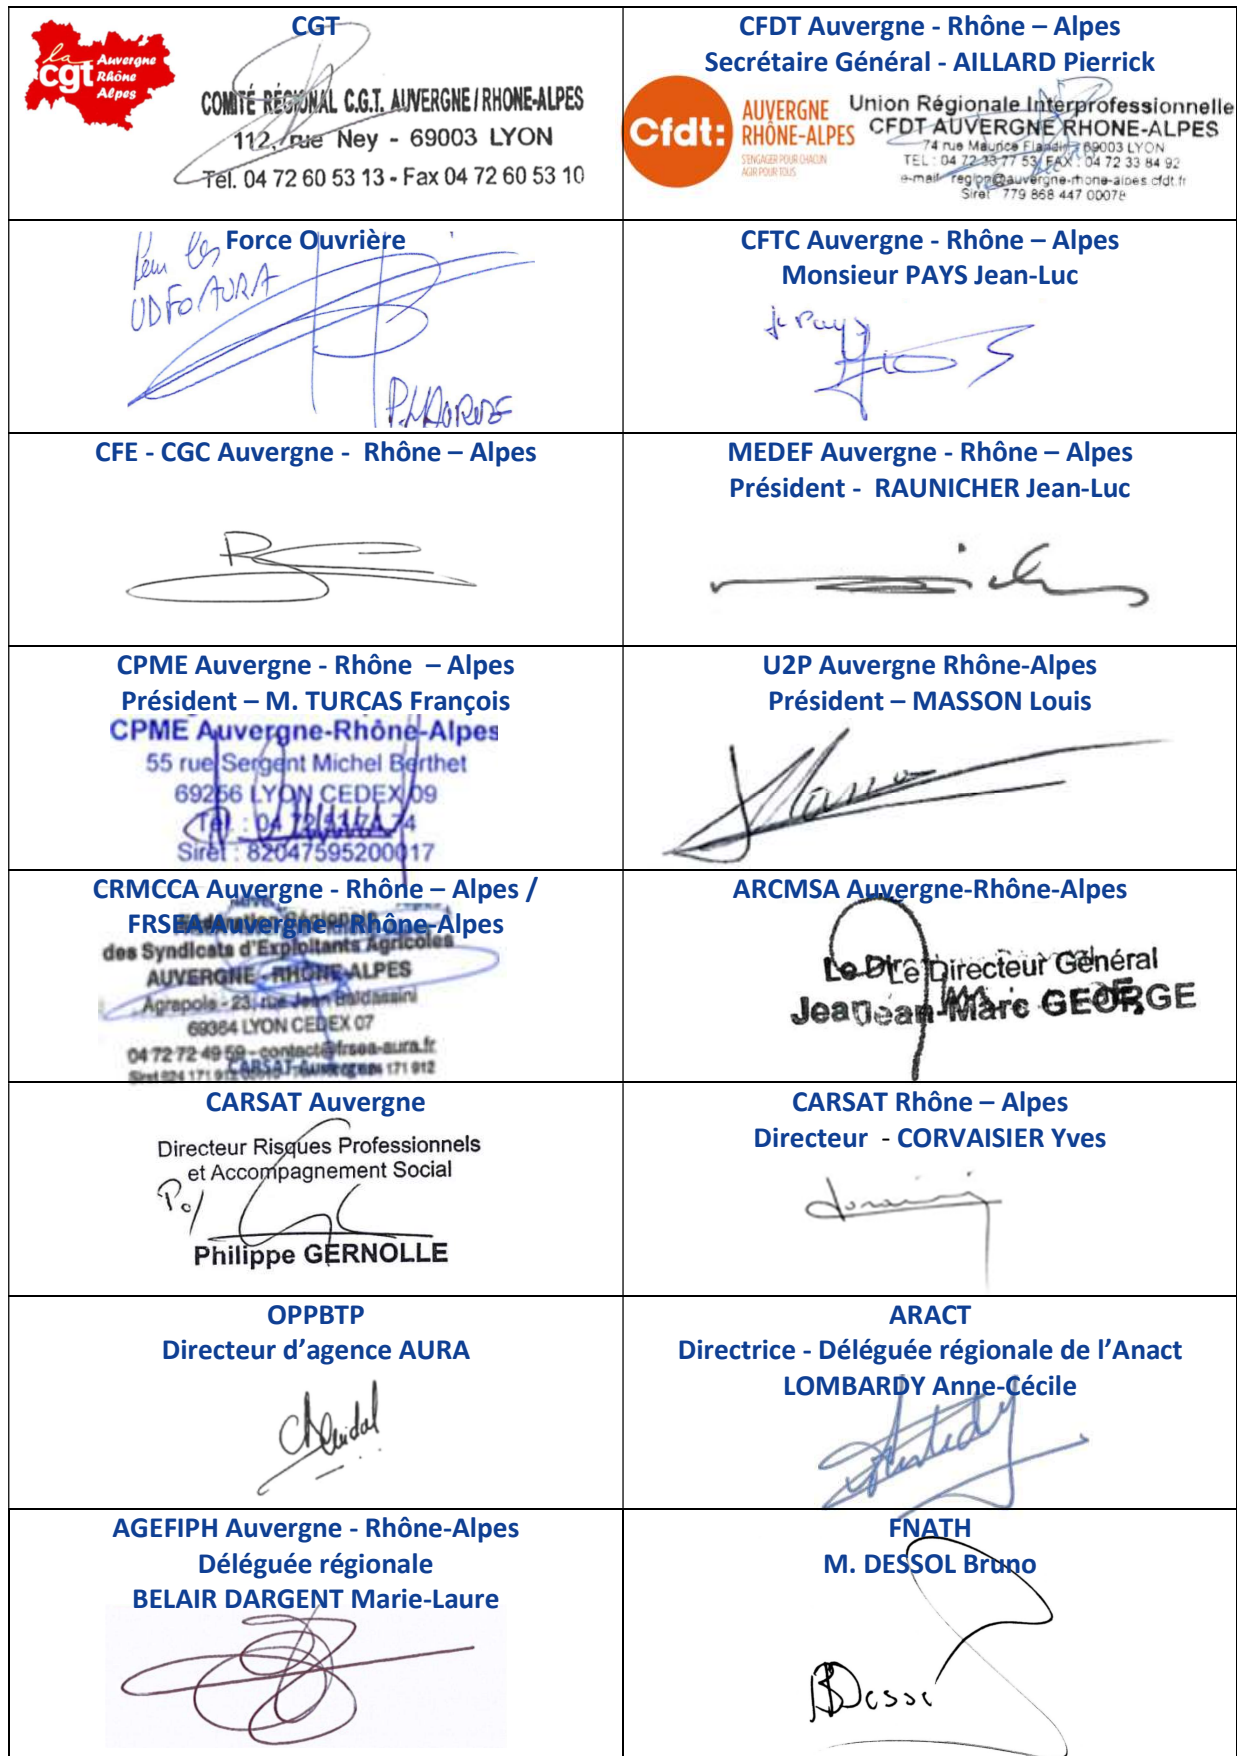 CGT
la cgt Auvergne Rhône Alpes
COMITÉ RÉGIONAL C.G.T. AUVERGNE / RHONE-ALPES
112, rue Ney - 69003 LYON
Tél. 04 72 60 53 13 - Fax 04 72 60 53 10
CFDT Auvergne - Rhône – Alpes
Secrétaire Général - AILLARD Pierrick
Cfdt:
AUVERGNE
RHÔNE-ALPES
S'ENGAGER POUR CHACUN
AGIR POUR TOUS
Union Régionale Interprofessionnelle
CFDT AUVERGNE RHONE-ALPES
74 rue Maurice Flandin 69003 LYON
TEL : 04 72 33 77 53 / FAX : 04 72 33 84 92
e-mail region@auvergne-rhone-alpes.cfdt.fr
Siret 779 868 447 00078
Force Ouvrière
Pour les
UDFO AURA
CFTC Auvergne - Rhône – Alpes
Monsieur PAYS Jean-Luc
CFE - CGC Auvergne - Rhône – Alpes
MEDEF Auvergne - Rhône – Alpes
Président - RAUNICHER Jean-Luc
CPME Auvergne - Rhône – Alpes
Président – M. TURCAS François
CPME Auvergne-Rhône-Alpes
55 rue Sergent Michel Berthet
69256 LYON CEDEX 09
Tél. : 04 72 53 74 74
Siret : 82047595200017
U2P Auvergne Rhône-Alpes
Président – MASSON Louis
CRMCCA Auvergne - Rhône – Alpes /
FRSEA Auvergne - Rhône-Alpes
des Syndicats d'Exploitants Agricoles
AUVERGNE - RHÔNE-ALPES
Agrapole - 23, rue Jean Baldassini
69364 LYON CEDEX 07
04 72 72 49 59 - contact@frsea-aura.fr
CARSAT Auvergne
ARCMSA Auvergne-Rhône-Alpes
Le Directeur Général
Jean-Marc GEORGE
CARSAT Auvergne
Directeur Risques Professionnels
et Accompagnement Social
Po/
Philippe GERNOLLE
CARSAT Rhône – Alpes
Directeur - CORVAISIER Yves
OPPBTP
Directeur d'agence AURA
ARACT
Directrice - Déléguée régionale de l'Anact
LOMBARDY Anne-Cécile
AGEFIPH Auvergne - Rhône-Alpes
Déléguée régionale
BELAIR DARGENT Marie-Laure
FNATH
M. DESSOL Bruno